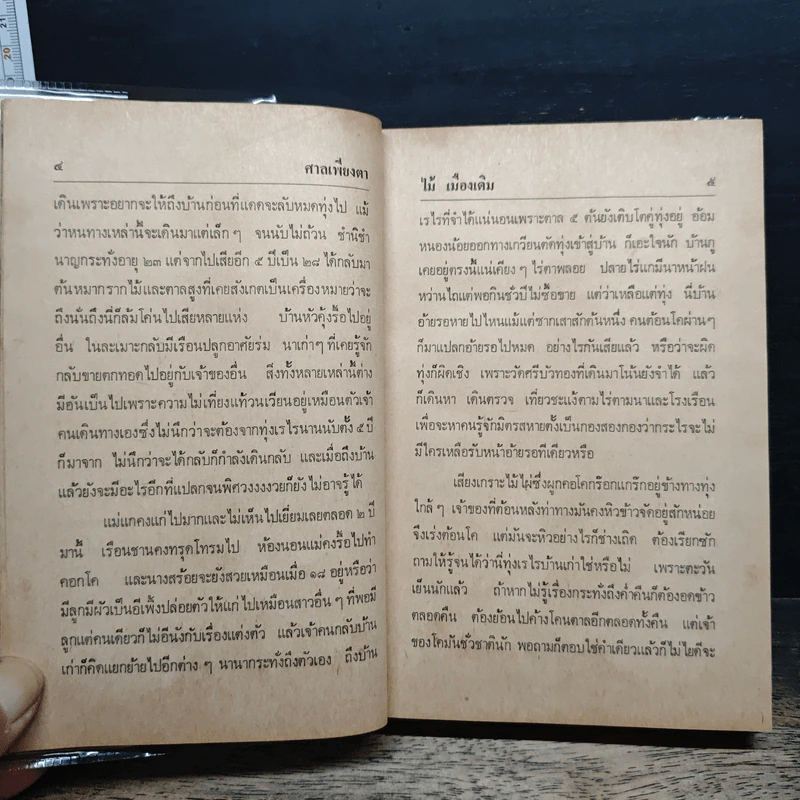 ๔ ศาลเพียงตา
เดินเพราะอยากจะให้ถึงบ้านก่อนที่แดดจะลับหมดทุ่งไป แม้
ว่าหนทางเหล่านี้จะเดินมาแต่เล็ก ๆ จนนับไม่ถ้วน ชำนิชำ
นาญกระทั่งอายุ ๒๓ แต่จากไปเสียอีก ๕ ปีเป็น ๒๘ ได้กลับมา
ต้นหมากรากไม้และตาลสูงที่เคยสังเกตเป็นเครื่องหมายว่าจะ
ถึงนั่นถึงนี่ก็ล้มโค่นไปเสียหลายแห่ง บ้านหัวคุ้งรื้อไปอยู่
อื่น ในละเมาะกลับมีเรือนปลูกอาศัยร่ม นาเก่า ๆ ที่เคยรู้จัก
กลับขายตกทอดไปอยู่กับเจ้าของอื่น สิ่งทั้งหลายเหล่านี้ต่าง
มีอันเป็นไปเพราะความไม่เที่ยงแท้วนเวียนอยู่เหมือนตัวเจ้า
คนเดินทางเองซึ่งไม่นึกว่าจะต้องจากทุ่งเรไรนานนับตั้ง ๕ ปี
ก็มาจาก ไม่นึกว่าจะได้กลับก็กำลังเดินกลับ และเมื่อถึงบ้าน
แล้วยังจะมีอะไรอีกที่แปลกจนพิศวงงงงวยก็ยังไม่อาจรู้ได้
แม่แกคงแก่ไปมากและไม่เห็นไปเยี่ยมเลยตลอด ๒ ปี
มานี้ เรือนชานคงทรุดโทรมไป ห้องนอนแม่คงรื้อไปทำ
คอกโค และนางสร้อยจะยังสวยเหมือนเมื่อ ๑๘ อยู่หรือว่า
มีลูกมีผัวเป็นอีเพิ้งปล่อยตัวให้แก่ไปเหมือนสาวอื่น ๆ ที่พอมี
ลูกแต่คนเดียวก็ไม่อีนังกับเรื่องแต่งตัว แล้วเจ้าคนกลับบ้าน
เก่าก็คิดแยกย้ายไปอีกต่าง ๆ นานากระทั่งถึงตัวเอง ถึงบ้าน
ไม้ เมืองเดิม ๕
เรไรที่จำได้แน่นอนเพราะตาล ๕ ต้นยังเติบโตคู่ทุ่งอยู่ อ้อม
หนองน้อยออกทางเกวียนตัดทุ่งเข้าสู่บ้าน ก็เอะใจนัก บ้านกู
เคยอยู่ตรงนี้แน่เคียง ๆ ไร่ตาพลอย ปลายไร่แกมีนาหน้าฝน
หว่านไถแต่พอกินชั่วปีไม่ซื้อขาย แต่ว่าเหลือแต่ทุ่ง นี่บ้าน
อ้ายรอหายไปไหนแม้แต่ซากเสาสักต้นหนึ่ง คนต้อนโคผ่าน ๆ
ก็มาแปลกอ้ายรอไปหมด อย่างไรกันเสียแล้ว หรือว่าจะผิด
ทุ่งก็ผิดเชิง เพราะวัดศรีบัวทองที่เดินมาโน้นยังจำได้ แล้ว
ก็เดินหา เดินตรวจ เที่ยวชะแง้ตามไร่ตามนาและโรงเรือน
เพื่อจะหาคนรู้จักมิตรสหายตั้งเป็นกองสองกองว่ากระไรจะไม่
มีใครเหลือรับหน้าอ้ายรอทีเดียวหรือ
เสียงเกราะไม้ไผ่ซึ่งผูกคอโคกร๊อกแกร๊กอยู่ข้างทางทุ่ง
ใกล้ ๆ เจ้าของที่ต้อนหลังท่าทางมันคงหิวข้าวจัดอยู่สักหน่อย
จึงเร่งต้อนโค แต่มันจะหิวอย่างไรก็ช่างเถิด ต้องเรียกซัก
ถามให้รู้จนได้ว่านี่ทุ่งเรไรบ้านเก่าใช่หรือไม่ เพราะตะวัน
เย็นนักแล้ว ถ้าหากไม่รู้เรื่องกระทั่งถึงค่ำคืนก็ต้องอดข้าว
ตลอดคืน ต้องย้อนไปค้างโคนตาลอีกตลอดทั้งคืน แต่เจ้า
ของโคมันชั่วชาตินัก พอถามก็ตอบใช่คำเดียวแล้วก็ไม่ไยดีจะ
21
20